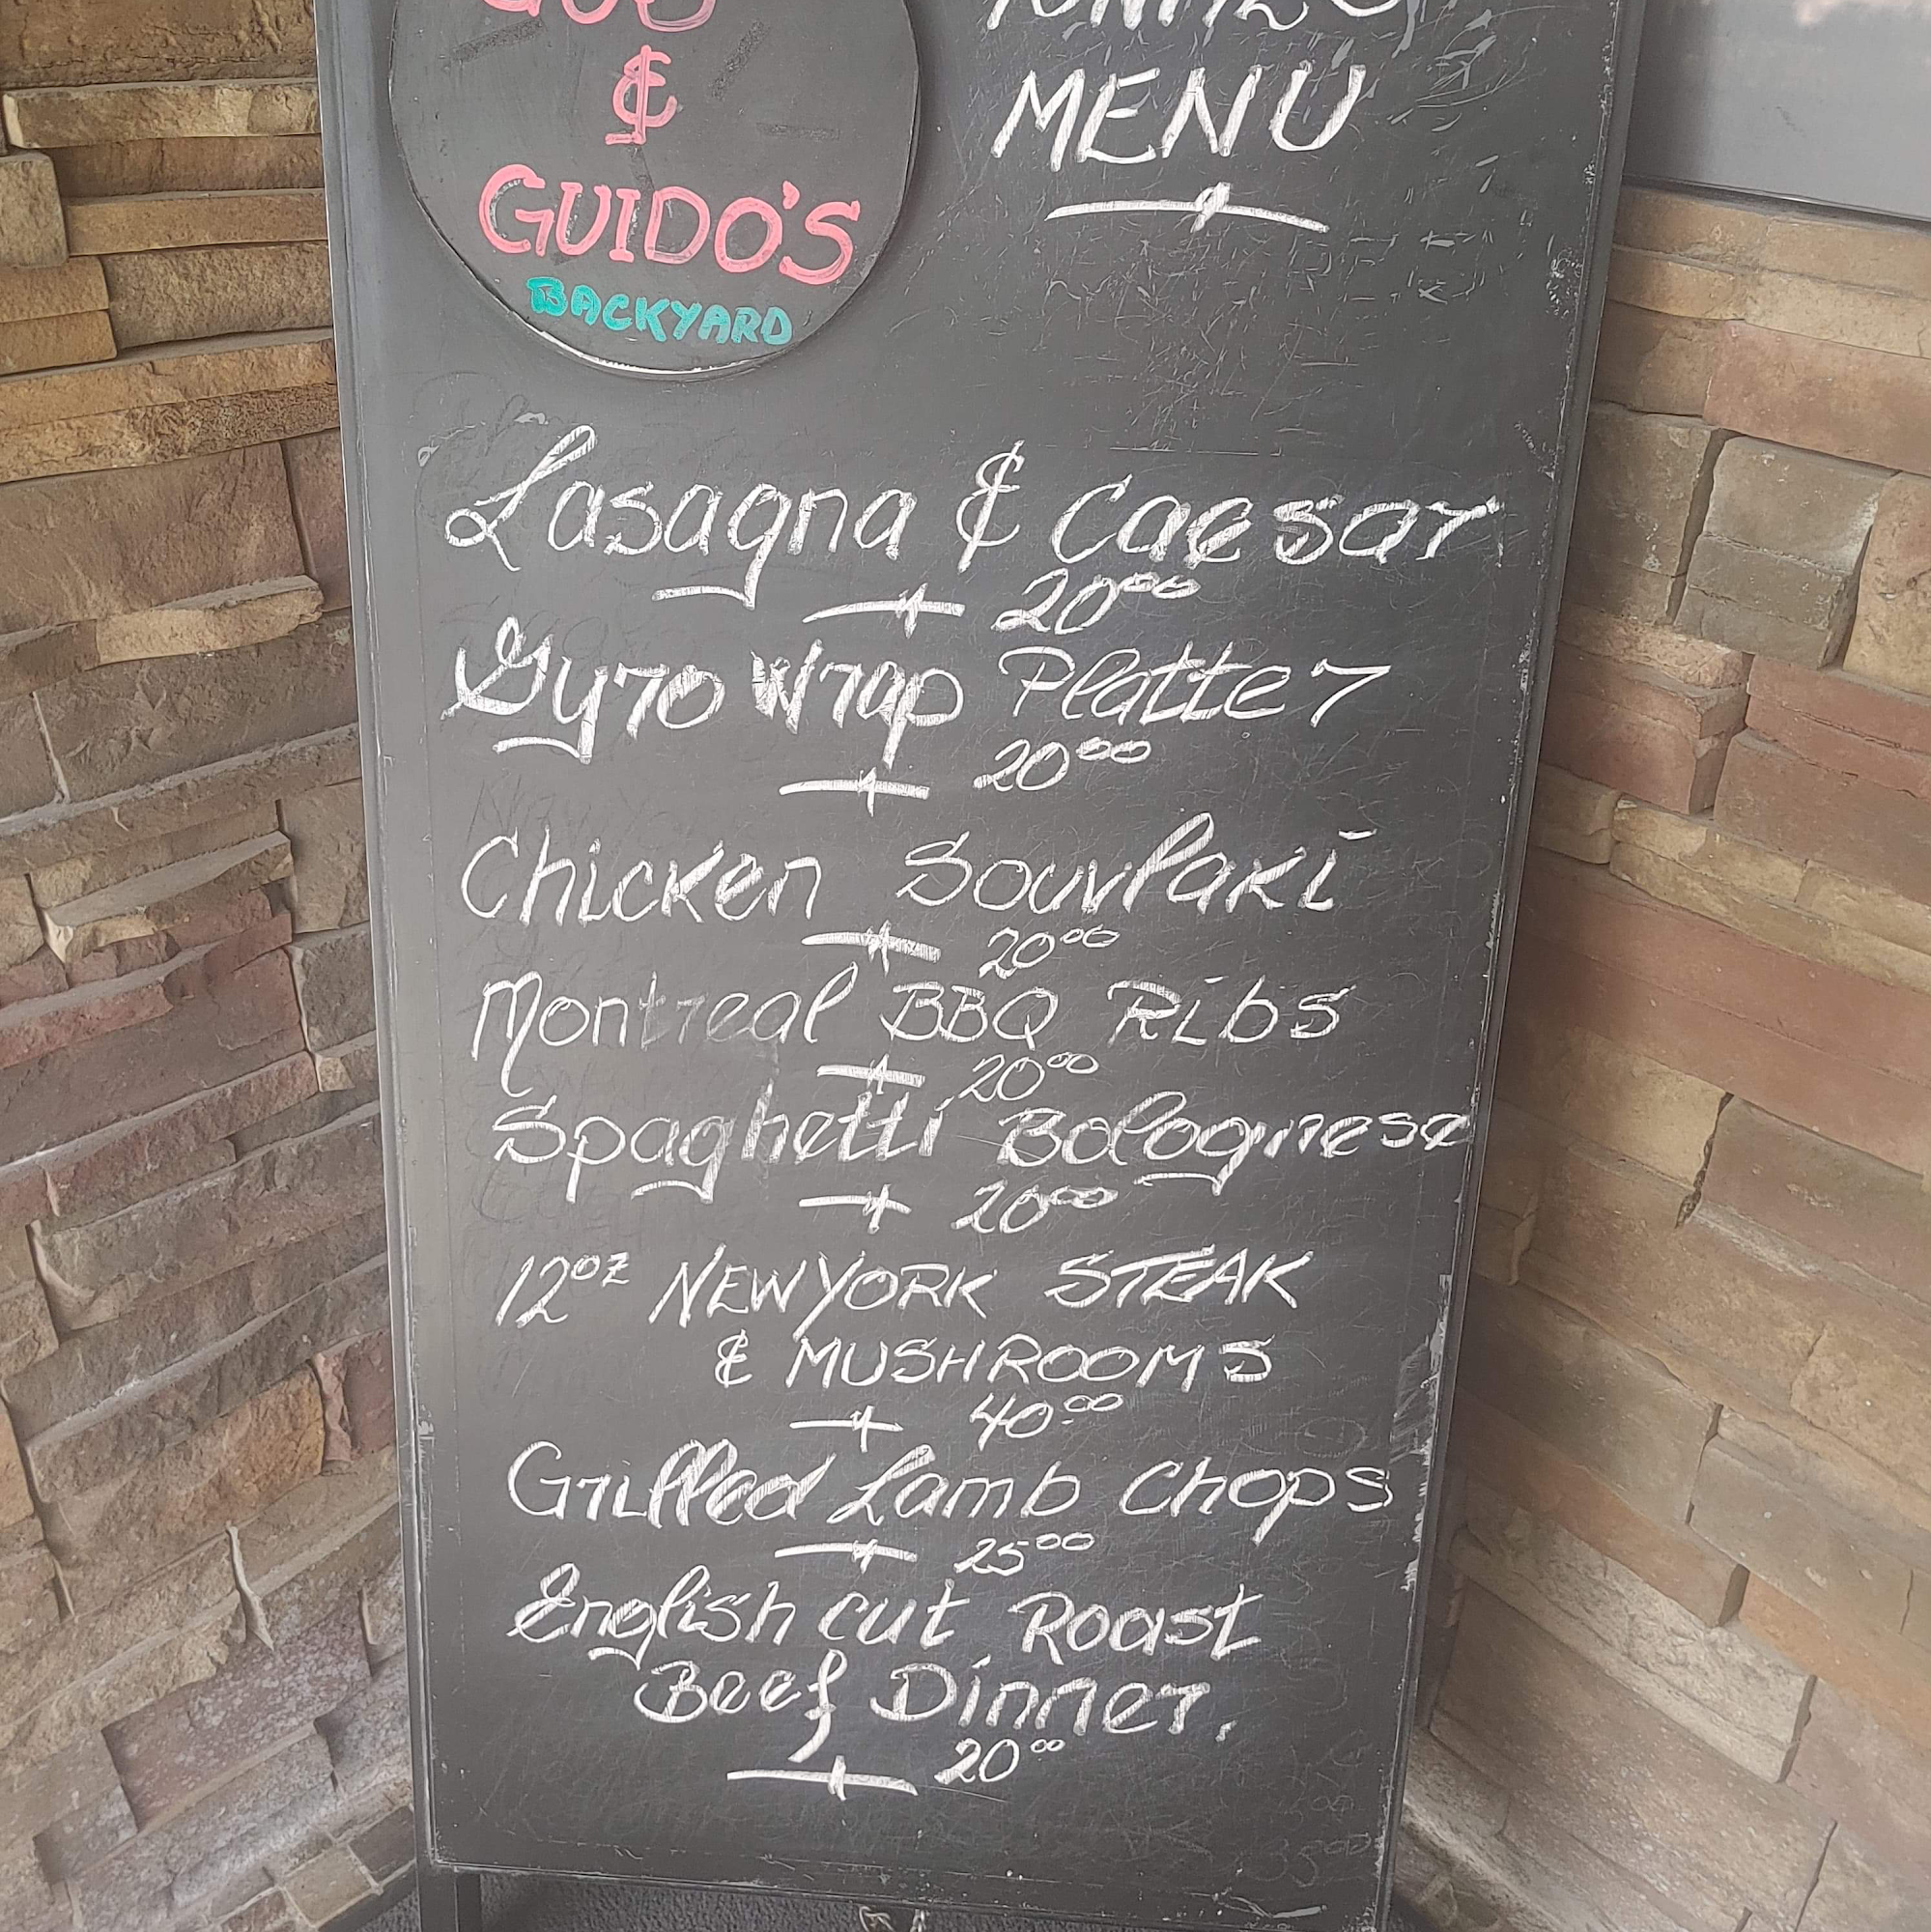 &
GUIDO'S
BACKYARD
MENU
Lasagna & Caesar
20⁰⁰
Gyro Wrap Platter
20⁰⁰
Chicken Souvlaki
20⁰⁰
Montreal BBQ Ribs
20⁰⁰
Spaghetti Bolognese
20⁰⁰
12oz NEWYORK STEAK
& MUSHROOMS
40.⁰⁰
Grilled Lamb Chops
25⁰⁰
English cut Roast
Beef Dinner.
20⁰⁰